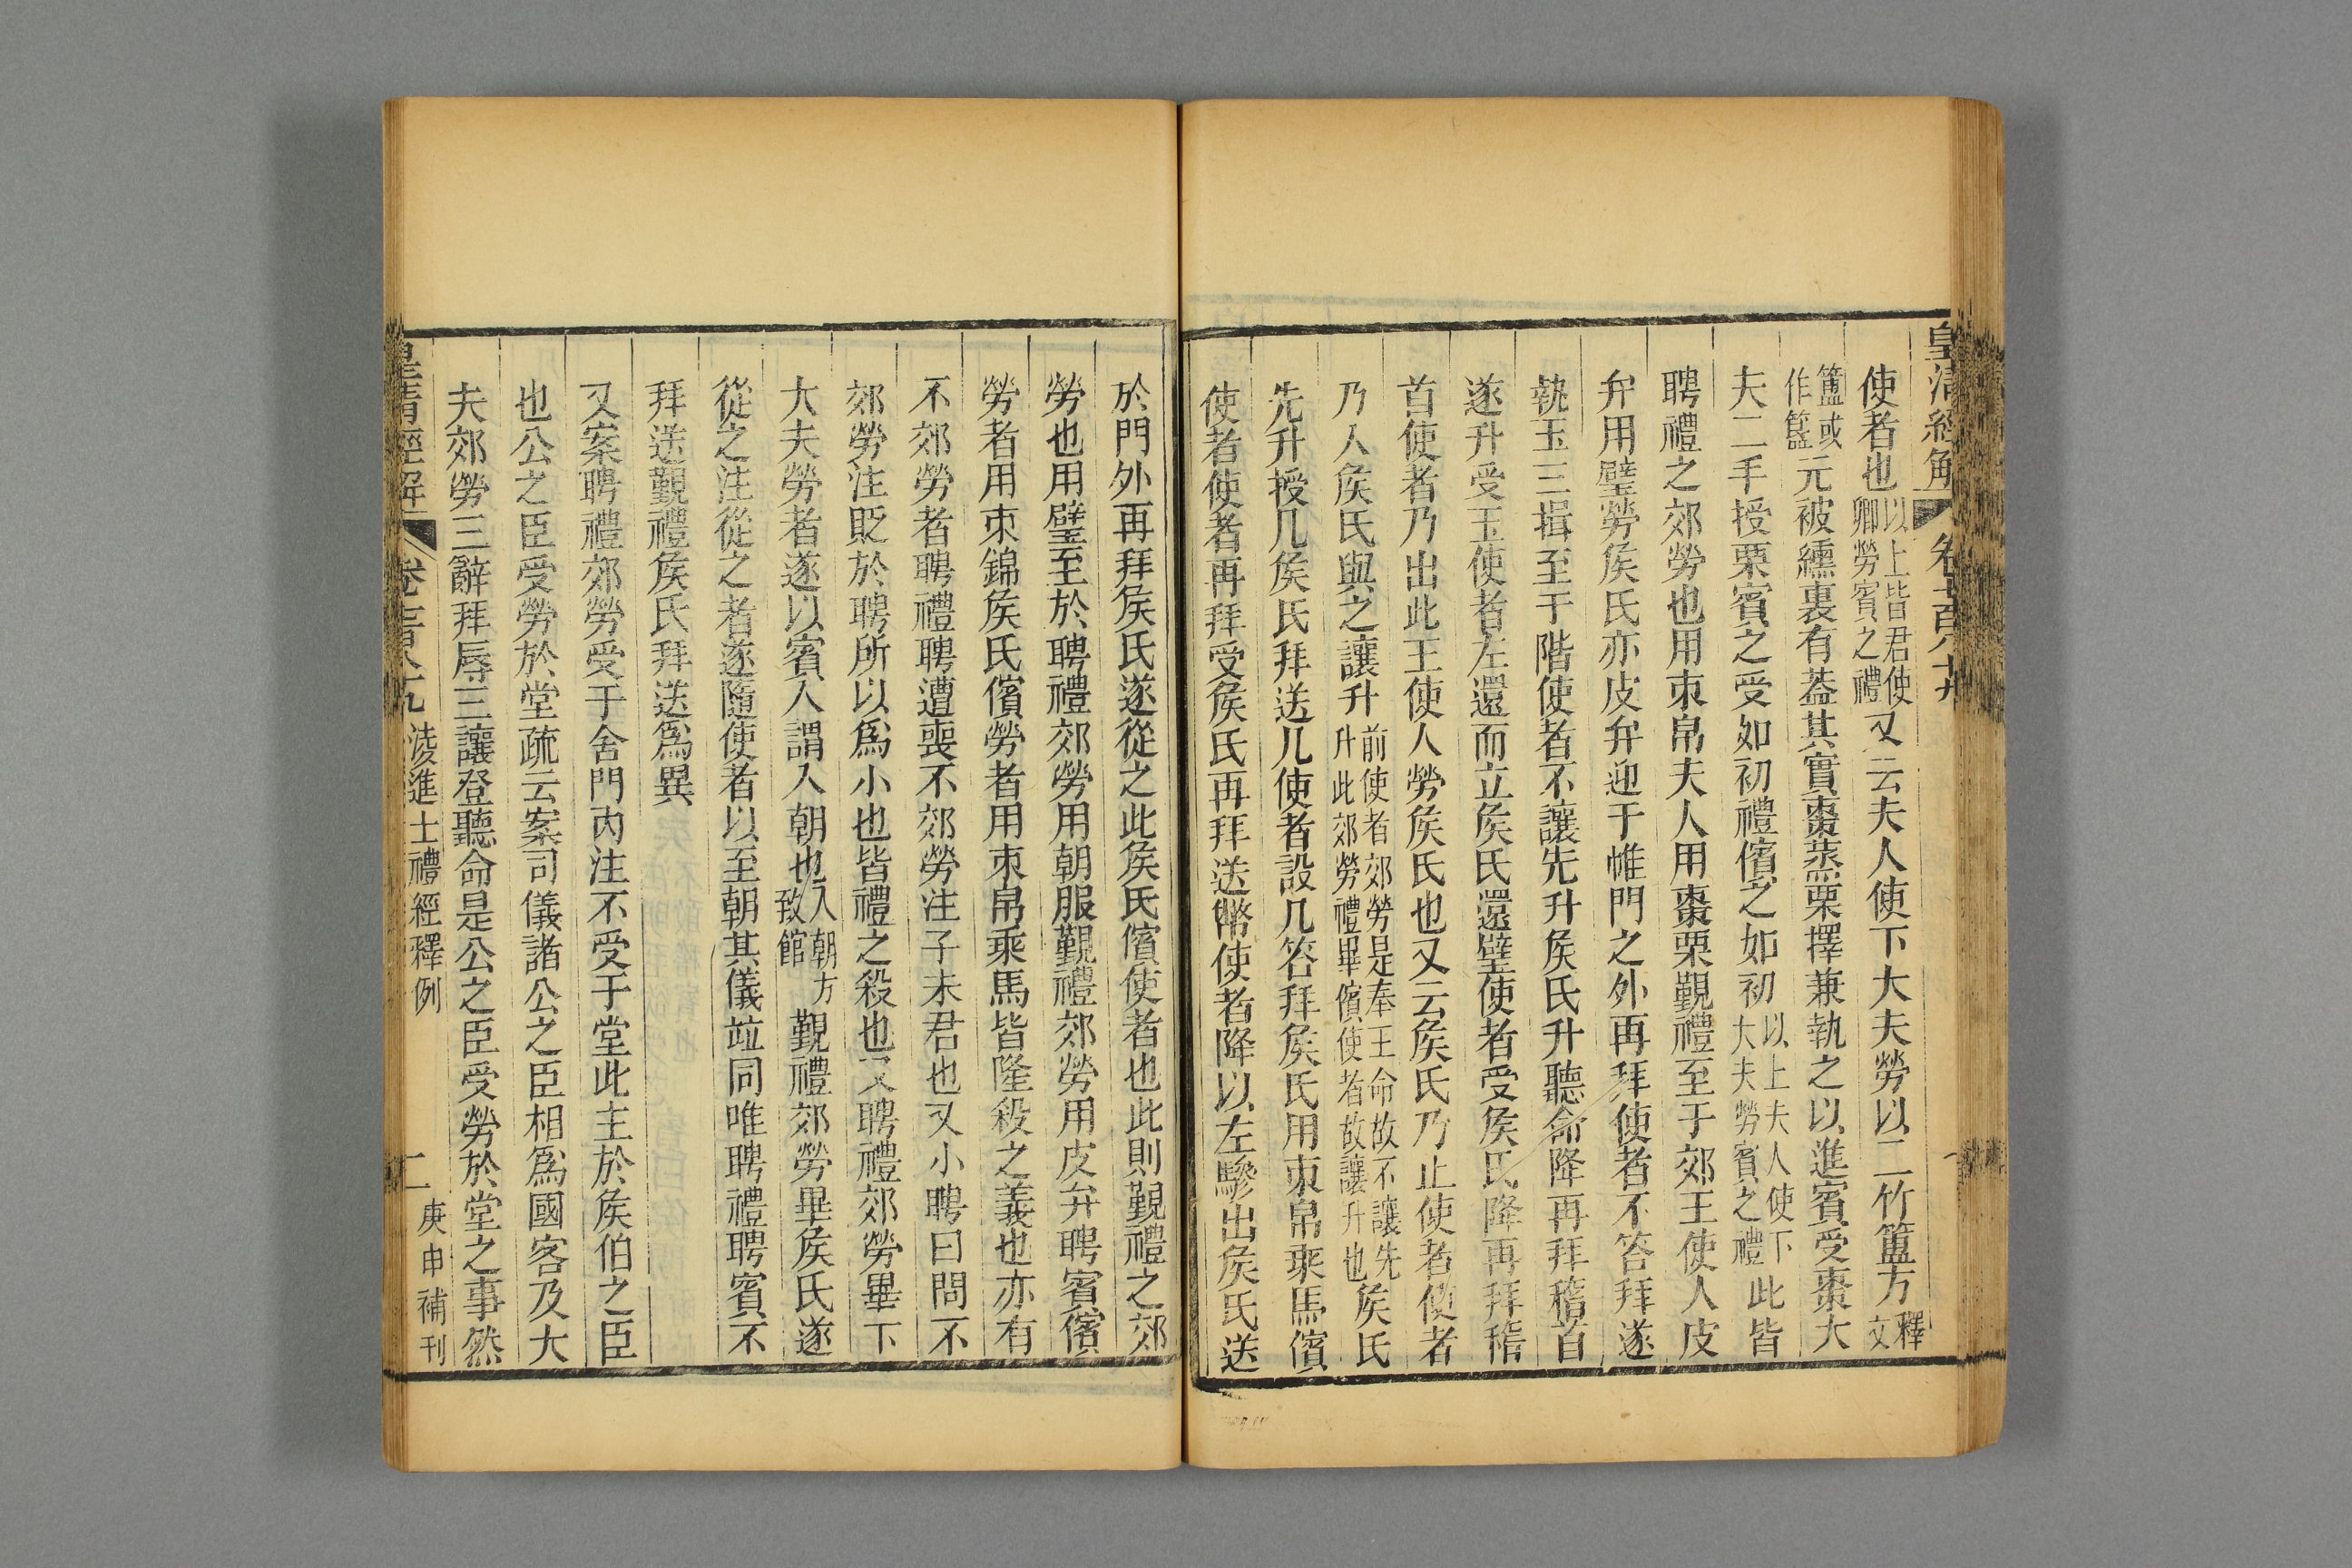 皇清經解 卷七百八十九
使者也以上皆君使卿勞賓之禮又云夫人使下大夫勞以二竹簠方釋文
簠或作簋元被纁裏有葢其實棗蒸栗擇兼執之以進賓受棗大
夫二手授栗賓之受如初禮儐之如初以上夫人使下大夫勞賓之禮此皆
聘禮之郊勞也用束帛夫人用棗栗覲禮至于郊王使人皮
弁用璧勞矦氏亦皮弁迎于帷門之外再拜使者不答拜遂
執玉三揖至于階使者不讓先升矦氏升聽命降再拜稽首
遂升受玉使者左還而立矦氏還璧使者受矦氏降再拜稽
首使者乃出此王使人勞矦氏也又云矦氏乃止使者使者
乃入矦氏與之讓升前使者郊勞是奉王命故不讓先升此郊勞禮畢儐使者故讓升也矦氏
先升授几矦氏拜送几使者設几答拜矦氏用束帛乘馬儐
使者使者再拜受矦氏再拜送幣使者降以左驂出矦氏送
於門外再拜矦氏遂從之此矦氏儐使者也此則覲禮之郊
勞也用璧至於聘禮郊勞用朝服覲禮郊勞用皮弁聘賓儐
勞者用束錦矦氏儐勞者用束帛乘馬皆隆殺之義也亦有
不郊勞者聘禮聘遭喪不郊勞注子未君也又小聘曰問不
郊勞注貶於聘所以爲小也皆禮之殺也又聘禮郊勞畢下
大夫勞者遂以賓入謂入朝也入朝方致館覲禮郊勞畢矦氏遂
從之注從之者遂隨使者以至朝其儀竝同唯聘禮聘賓不
拜送覲禮矦氏拜送爲異
又案聘禮郊勞受于舍門内注不受于堂此主於矦伯之臣
也公之臣受勞於堂疏云案司儀諸公之臣相爲國客及大
夫郊勞三辭拜辱三讓登聽命是公之臣受勞於堂之事然
皇清經解 卷七百八十九 淩進士禮經釋例 二 庚申補刊